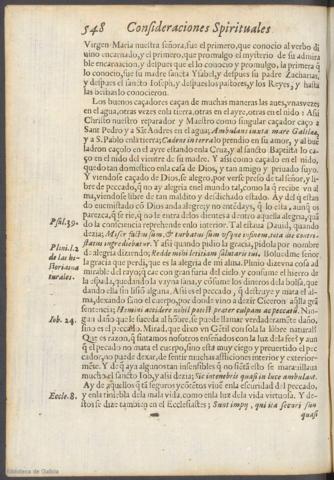 548 Consideraciones Spirituales
Virgen Maria nuestra señora, fue el primero, que conocio al verbo di
uino encarnado, y el primero, que promulgo el mysterio de su admira
ble encarnacion, y despues que el lo conocio y promulgo, la primera q̃
lo conocio, fue su madre sancta Ysabel, y despues su padre Zacharias,
y despues el sancto Ioseph, y despues los pastores, y los Reyes, y hasta
las bestias lo conocieron.
Los buenos caçadores caçan de muchas maneras las aues, vnas vezes
en el agua, otras vezes en la tierra, otras en el ayre, otras en el nido: Assi
Christo nuestro reparador y Maestro como singular caçador caço a
Sant Pedro y a Sãt Andres en el agua; Ambulans iuxta mare Galilea,
y a S. Pablo en la tierra; Cadens in terra lo prendio en su amor, y al buẽ
ladron caçolo en el ayre estando en la Cruz, y al sancto Baptista lo ca-
ço en el nido del vientre de su madre. Y assi como caçado en el nido,
quedo tan domestico en la casa de Dios, y tan amigo y priuado suyo.
Y viendose caçado de Dios, se alegro, por verse preso de tal señor, y li-
bre de peccado, q̃ no ay alegria en el mundo tal, como la q̃ recibe vn al
ma, viendose libre de tan maldito y desdichado estado. Ay del q̃ estan
do enemistado con Dios anda alegre y no entiẽde, q̃ lo esta: aunq̃ os
parezca, q̃ se rie, q̃ no le entra delos dientes a dentro aquella alegria, quã
do la consciencia reprehende enlo interior. Tal estaua Dauid, quando
dezia; Miser factus sum, & turbatus sum vsque in finem, tota die contri-
status ingrediebatur. Y assi quando pidio la gracia, pidola por nombre
de alegria: diziendo; Redde mihi lætitiam salutaris tui. Boluedme señor
la gracia que perdi, que es la alegria de mi alma. Plinio dize vna cosa ad
mirable del rayo, q̃ cae con gran furia del cielo y consume el hierro de
la espada, quedando la vayna sana, y consume los dineros dela bolsa, que
dando ella sin lesiõ alguna. Assi es el peccado, q̃ destruye y mata el al-
ma, dexando sano el cuerpo, por donde vino a dezir Ciceron aq̃lla grã
sentencia; Homini accidere nihil potest præter culpam ac peccatũ. Nin-
gun daño que le suceda al hõbre, se puede llamar verdaderamẽte daño,
sino es el peccado. Mirad, que dixo vn Gẽtil con sola la libre naturalᵉ
Que es razon, q̃ sintamos nosotros enseñados con la luz dela fee? y aun
q̃ el peccado no mata el cuerpo, sino està muy ciego y preuertido el pec
cador, no puede dexar, de sentir muchas afflictiones interior y exterior-
mẽte. Y de q̃ aya algunos tan insensibles q̃ no siẽtã esto se marauillaua
mucho el sancto Iob, y assi dezia; Sic in tenebris quasi in luce ambulant.
Ay de aquellos q̃ tã seguros y cõtẽtos viuẽ enla escuridad del peccado,
y enla tiniebla dela mala vida, como enla luz dela vida virtuosa. Y de-
stos se dize tambien en el Ecclesiastes; Sunt impy, qui ita securi sunt
quasi
Psal. 39.
Plini. l. 2
de las hi-
storia na
turales.
Iob. 24.
Eccle. 8.
Biblioteca de Galicia